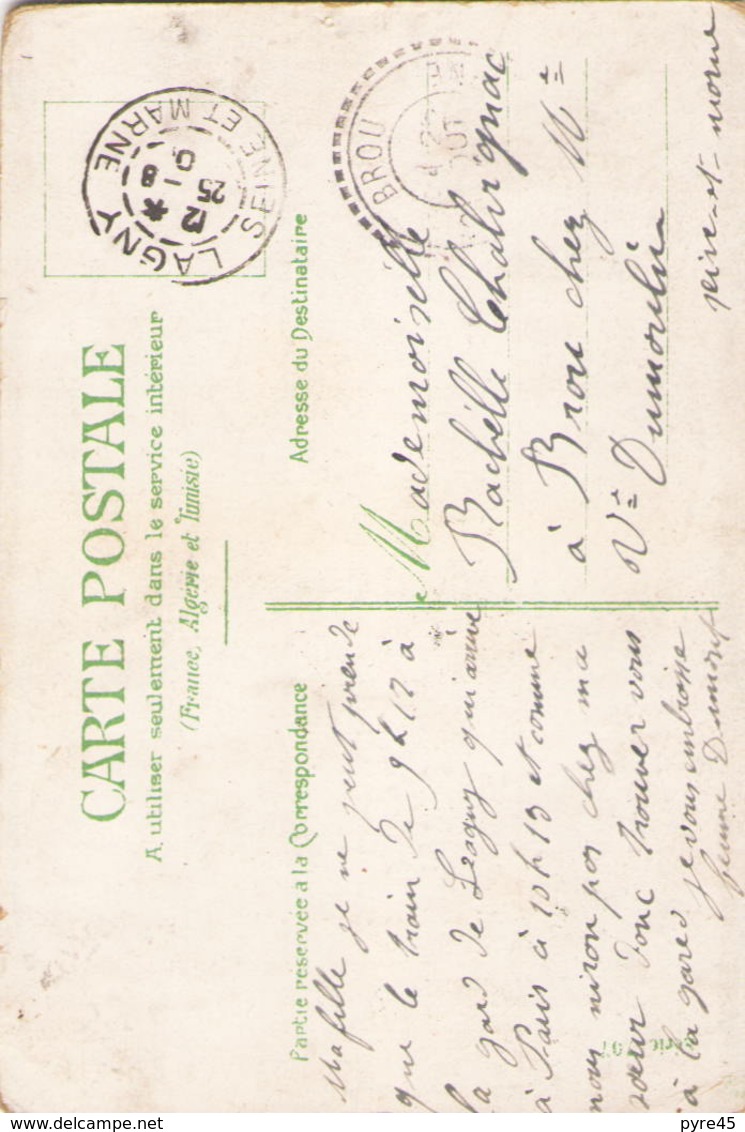 CARTE POSTALE
A utiliser seulement dans le service intérieur
(France, Algérie et Tunisie)
Partie réservée à la Correspondance
Adresse du Destinataire
LAGNY
SEINE ET MARNE
12 *
25 - 8
BROU
Ma fille je ne peut prende
que le train de 9 h 17 à
la gard de Lagny qui arrive
à Paris à 10 h 13 et comme
nous niron pas chez ma
sœur donc trouver vous
à la gared je vous embrasse
Dumont
Mademoiselle
Rachelle
à Brou chez Mme
Vve Dumoulin
seine-et-marne
pyre45